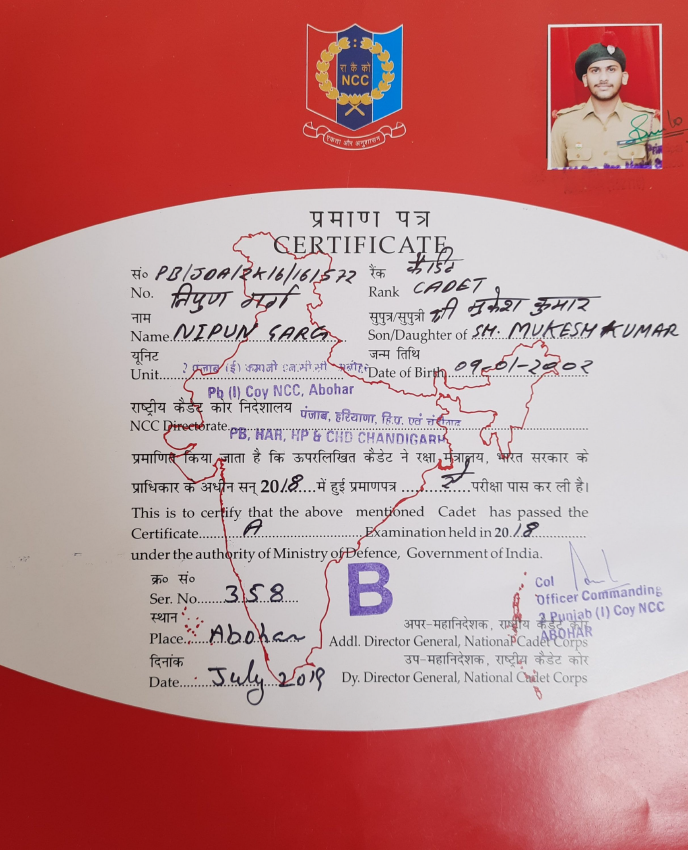 रा कै को
NCC
एकता और अनुशासन
प्रमाण पत्र
CERTIFICATE
सं० PB/JDA/2K16/161572
No.
रैंक कैडेट
Rank CADET
नाम निपुण गर्ग
Name NIPUN GARG
सुपुत्र/सुपुत्री श्री मुकेश कुमार
Son/Daughter of SH. MUKESH KUMAR
यूनिट
Unit Pb (I) Coy NCC, Abohar
जन्म तिथि
Date of Birth 09-01-2002
राष्ट्रीय कैडेट कोर निदेशालय पंजाब, हरियाणा, हि.प. एवं चंडीगढ़
NCC Directorate PB, HAR, HP & CHD CHANDIGARH
प्रमाणित किया जाता है कि ऊपरलिखित कैडेट ने रक्षा मंत्रालय, भारत सरकार के
प्राधिकार के अधीन सन् 2018 में हुई प्रमाणपत्र ए परीक्षा पास कर ली है।
This is to certify that the above mentioned Cadet has passed the
Certificate A Examination held in 2018
under the authority of Ministry of Defence, Government of India.
क्र० सं०
Ser. No. 358
B
Col
Officer Commanding
2 Punjab (I) Coy NCC
ABOHAR
स्थान
Place Abohar
अपर-महानिदेशक, राष्ट्रीय कैडेट कोर
Addl. Director General, National Cadet Corps
दिनांक
Date July 2019
उप-महानिदेशक, राष्ट्रीय कैडेट कोर
Dy. Director General, National Cadet Corps